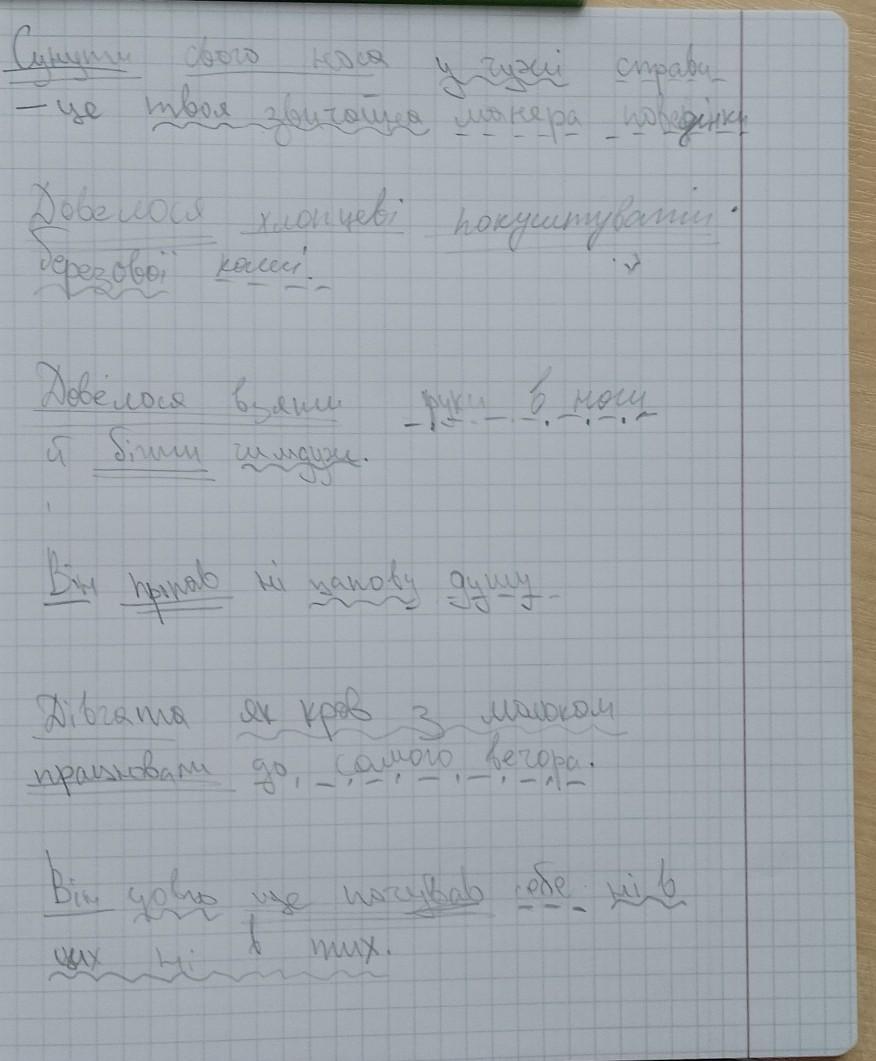 Сунути свого носа у чужі справи
– це твоя звичайна манера поведінки
Довелося хлопцеві покуштувати
березової каші.
Довелося взяти руки в ноги
й бігти щодуху.
Він пропав ні за панову душу
Дівчата як кров з молоком
працювали до самого вечора.
Він довго ще почував себе ні в
цих ні в тих.